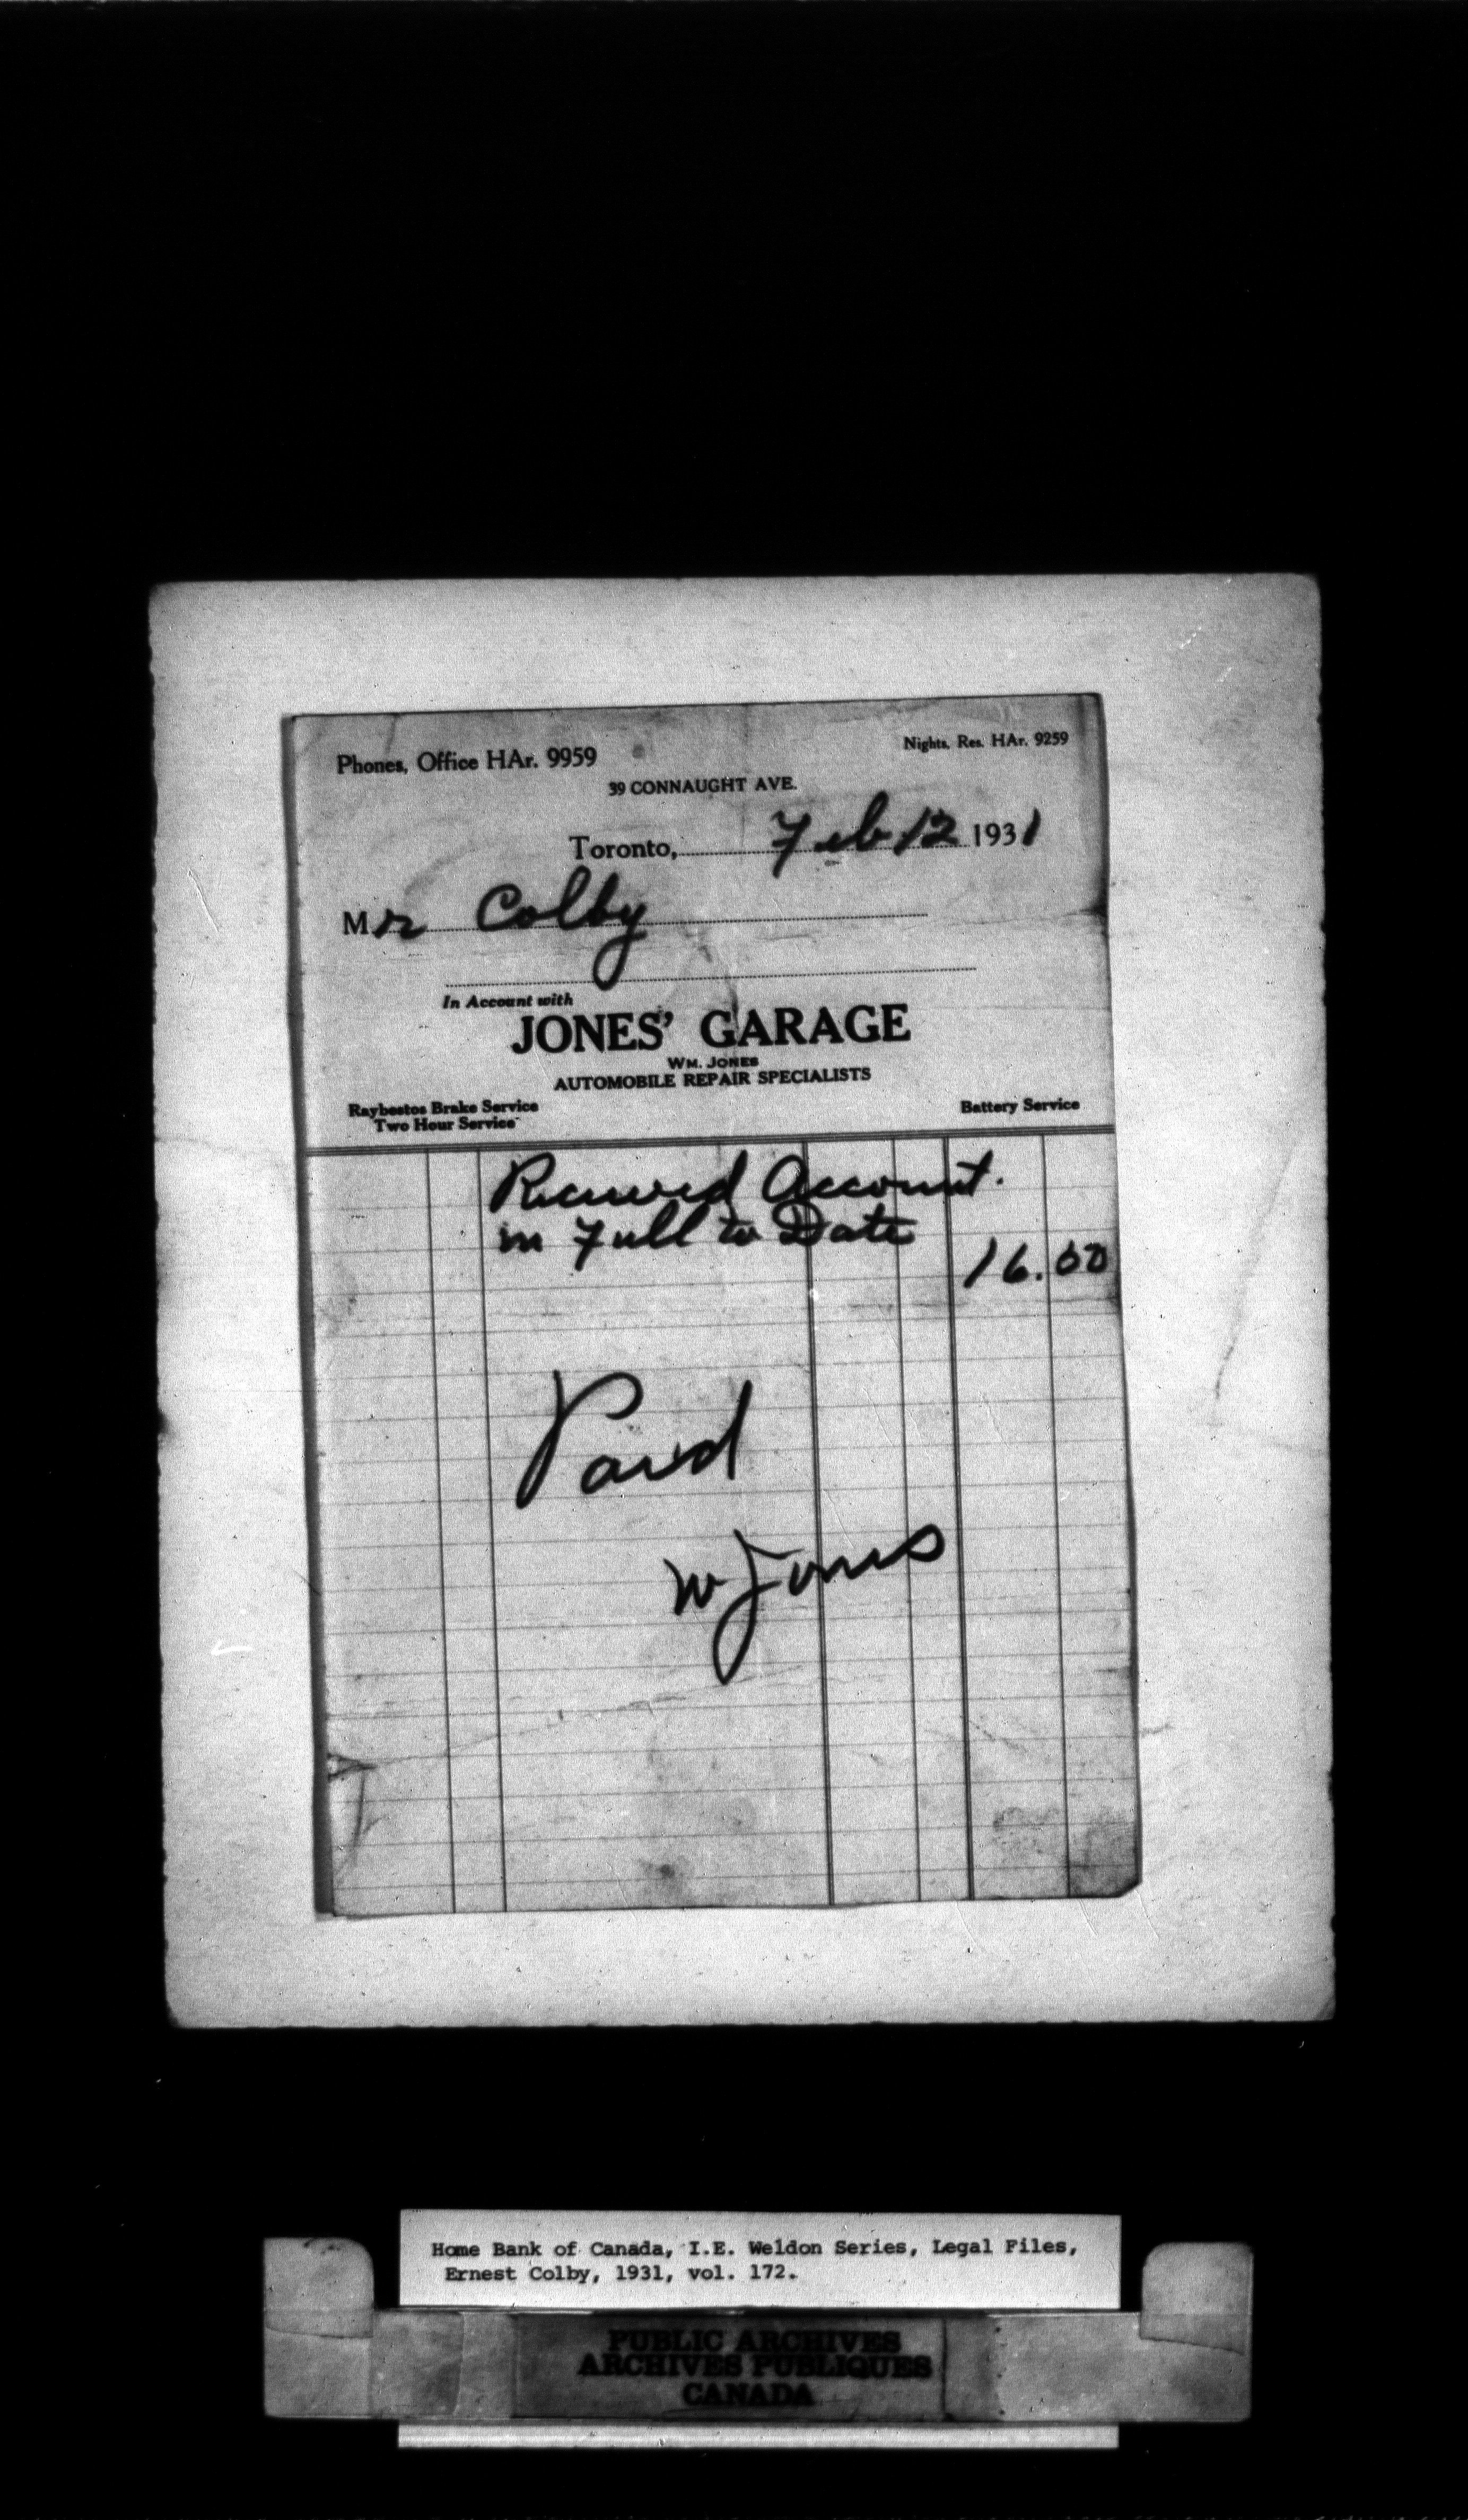 Phones, Office HAr. 9959
Nights, Res. HAr. 9259
39 CONNAUGHT AVE.
Toronto, Feb 12 1931
Mr Colby
In Account with
JONES' GARAGE
WM. JONES
AUTOMOBILE REPAIR SPECIALISTS
Raybestos Brake Service
Two Hour Service
Battery Service
Received Account.
in Full to Date
16.00
Paid
W Jones
Home Bank of Canada, I.E. Weldon Series, Legal Files,
Ernest Colby, 1931, vol. 172.
PUBLIC ARCHIVES
ARCHIVES PUBLIQUES
CANADA